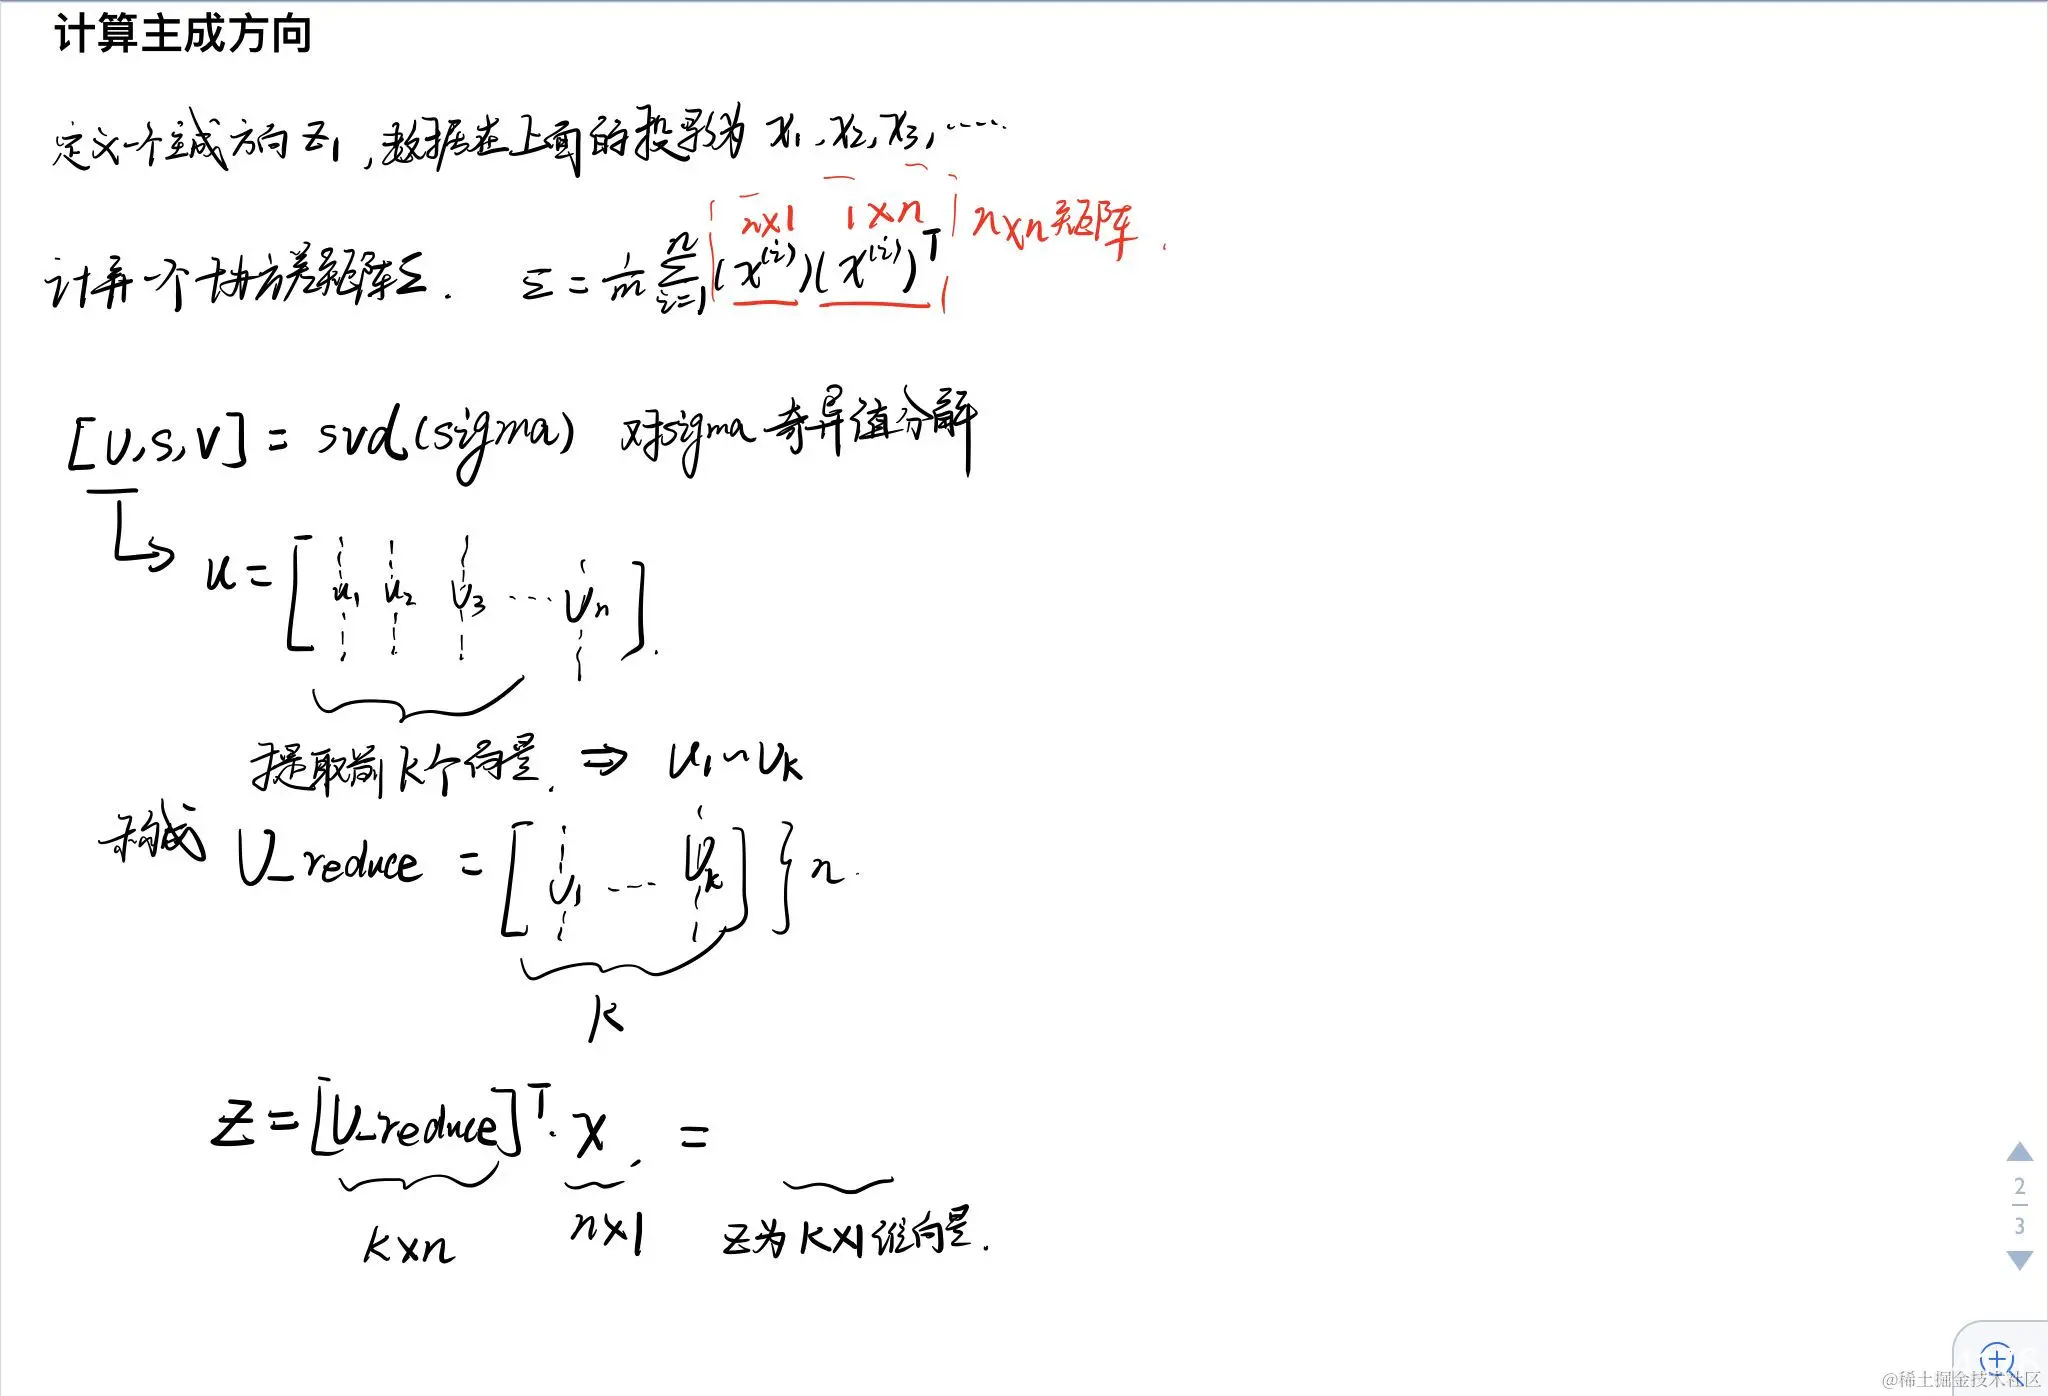 计算主成方向
定义一个主成方向 z₁,数据在上面的投影为 x₁、x₂,x₃,……
n×1 1×n n×n矩阵.
计算一个协方差矩阵Σ. Σ = 1/m Σⁿᵢ₌₁ (x⁽ⁱ⁾)(x⁽ⁱ⁾)ᵀ
[U,S,V] = svd(sigma) 对sigma奇异值分解
u = [u₁ u₂ U₃ … Uₙ].
提取前k个向量. ⇒ u₁~Uₖ
构成 U_reduce = [U₁ … Uₖ] } n.
k
z = [U_reduce]ᵀ· x. =
k×n n×1 z为k×1维向量.
2
3
@稀土掘金技术社区